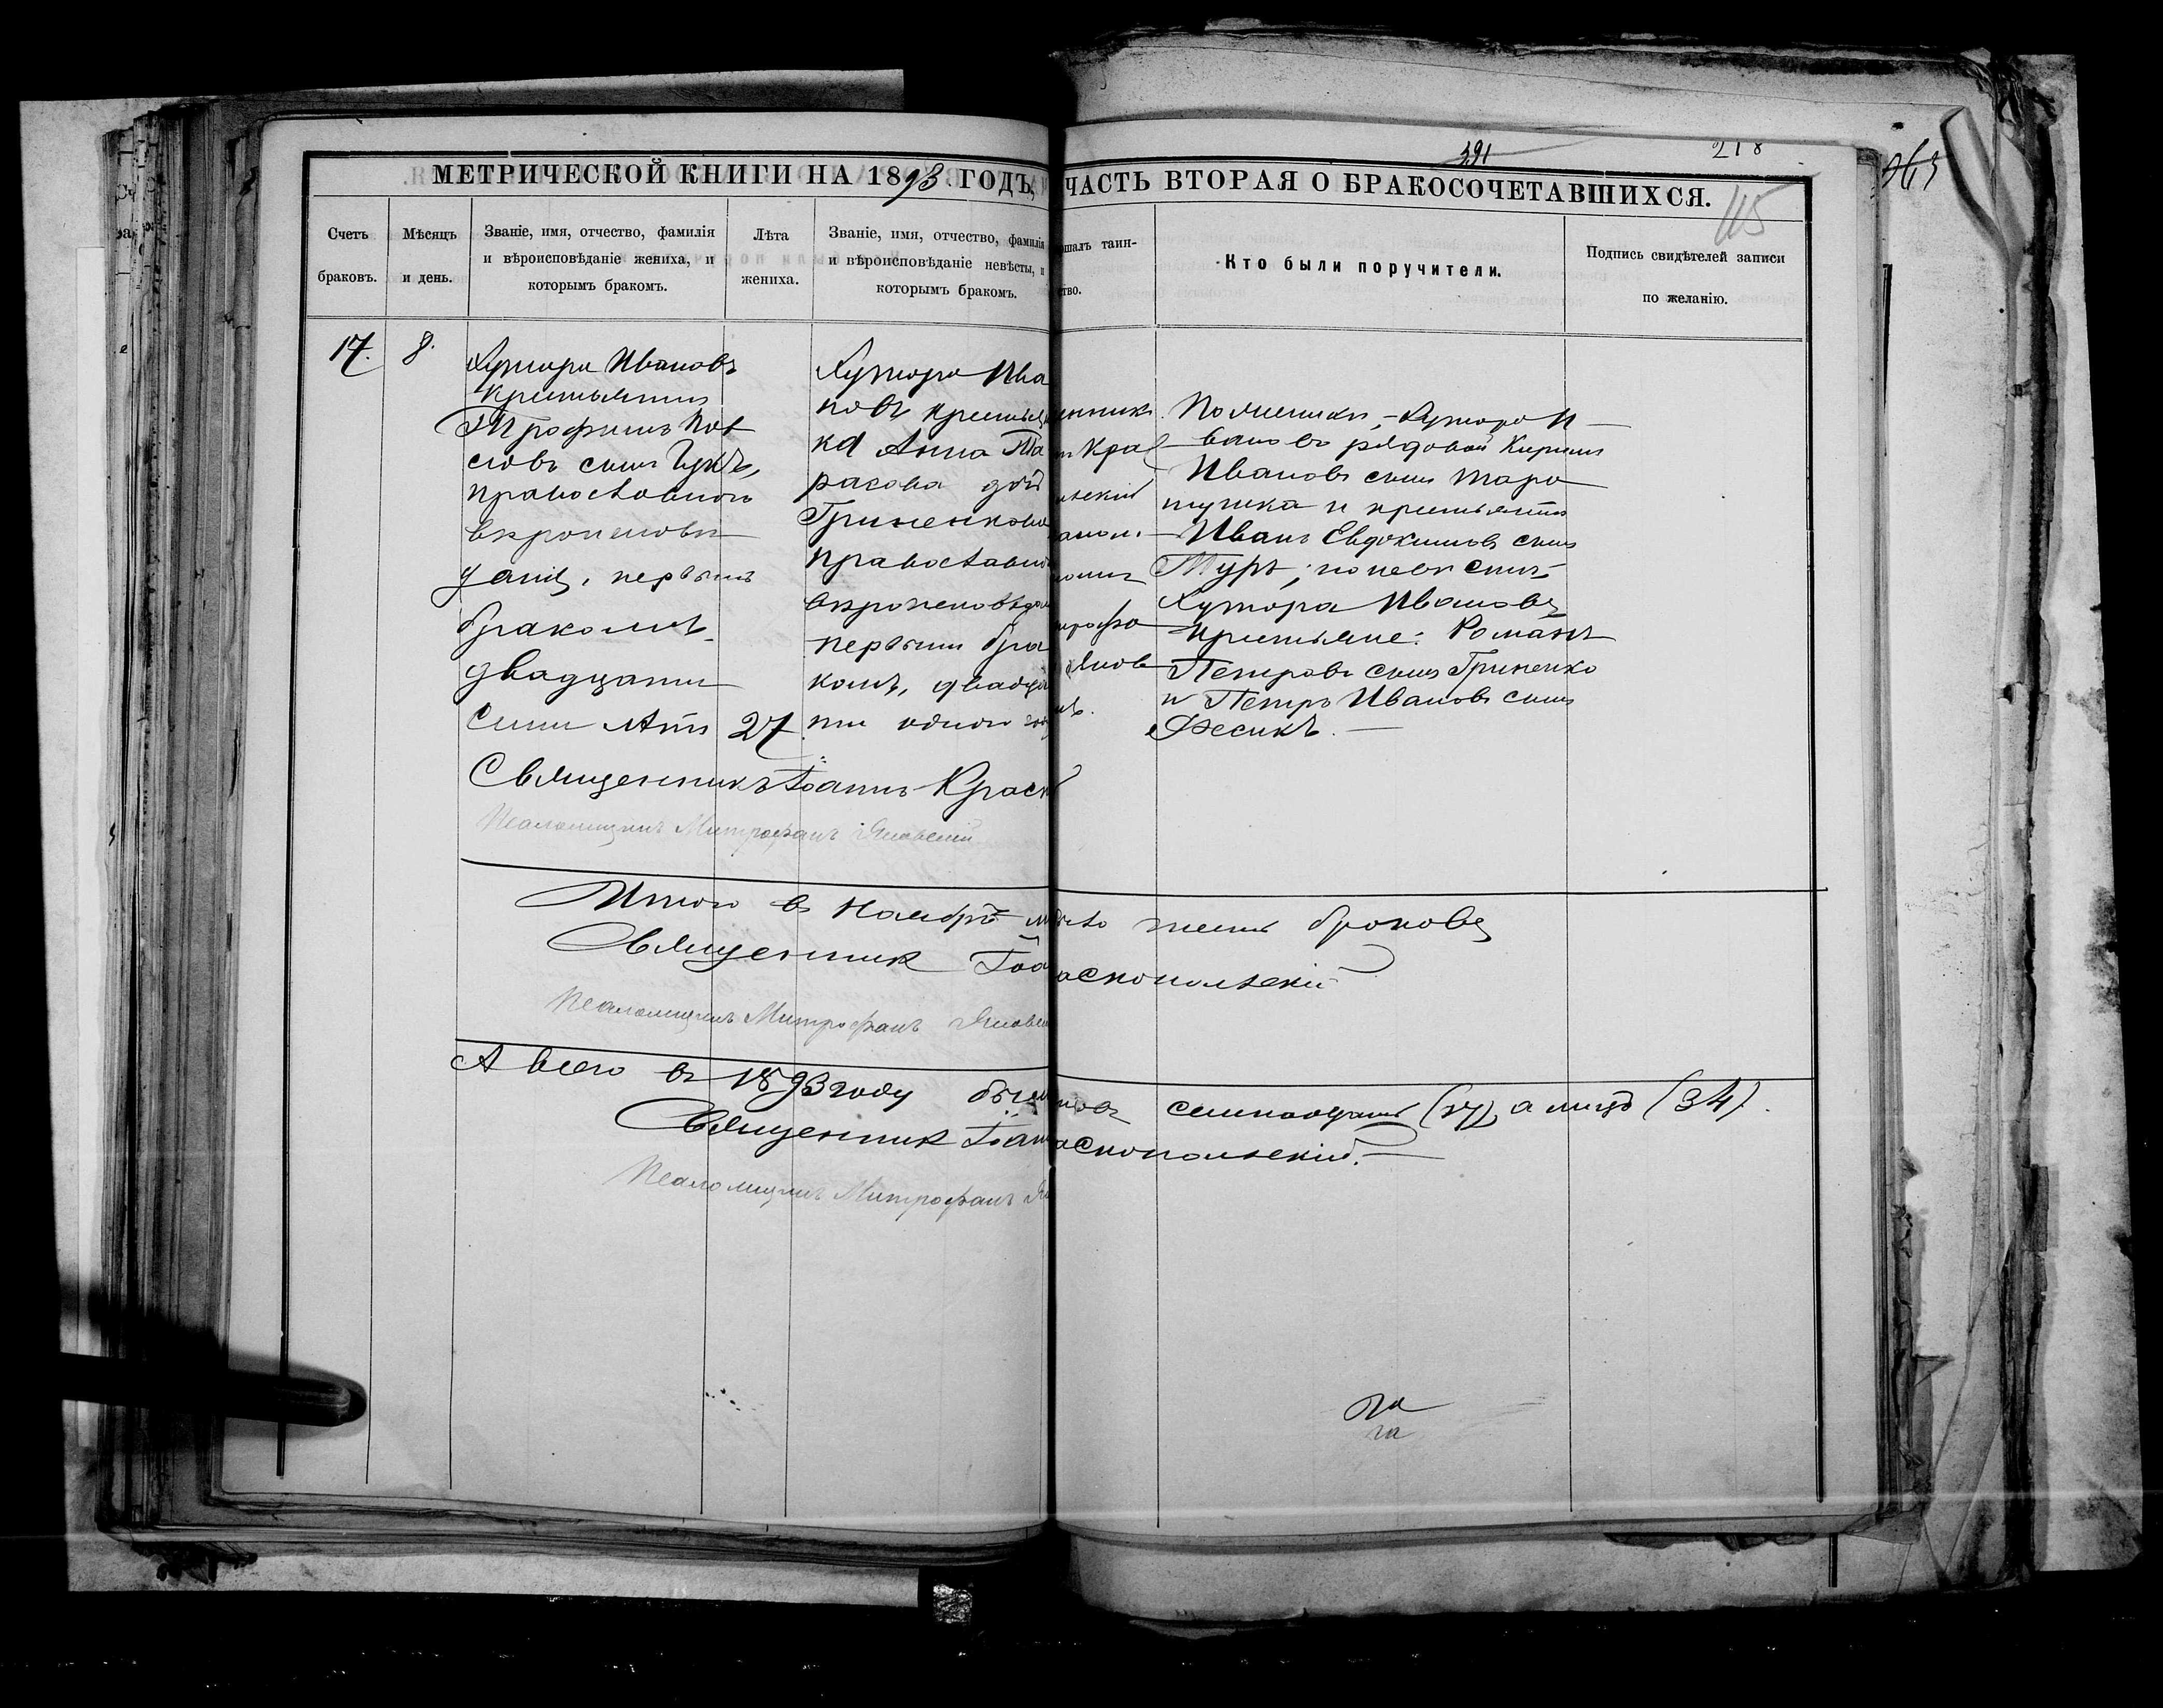 391
218
963
115
МЕТРИЧЕСКОЙ КНИГИ НА 1893 ГОДЪ,
ЧАСТЬ ВТОРАЯ О БРАКОСОЧЕТАВШИХСЯ.
Счетъ браковъ.
Мѣсяцъ и день.
Званіе, имя, отчество, фамилія
и вѣроисповѣданіе жениха, и
которымъ бракомъ.
Лѣта
жениха.
Званіе, имя, отчество, фамилія
и вѣроисповѣданіе невѣсты, и
которымъ бракомъ.
ршалъ таин-
ство.
Кто были поручители.
Подпись свидѣтелей записи
по желанію.
17.
8.
Хутора Ивановъ
крестьянинъ
Трофимъ
сынъ
православнаго
вѣроисповѣ
данія, первымъ
бракомъ
двадцати
семи лѣтъ
27
Хутора Ива
новъ крестьян
ка Анна Та
расова доч
Гриненкова
православна
вѣроисповѣдан
первымъ бра
комъ, двадца
ти одного год
енникъ
Крас
льскій
псалом
трофа
Янов
По женихѣ, Хутора И
вановъ рядовой Кирилъ
Ивановъ сынъ Таро
тушка и крестьянинъ
Иванъ Евдокимовъ сынъ
Туръ; по невѣстѣ
Хутора Ивановъ
крестьяне: Романъ
Петровъ сынъ Гриненко
и Петръ Ивановъ сынъ
Фесикъ.
Священникъ Іоаннъ Красн
Псаломщикъ Митрофанъ Яновскій
Итого въ Ноябрѣ мѣсяцѣ браковъ
Священникъ Іоа аскопольскій
Псаломщикъ Митрофанъ Яновск
А всего въ 1893 году было браковъ семнадцать (17), а лицъ (34).
Священникъ Іоан аскопольскій.
Псаломщикъ Митрофанъ Я